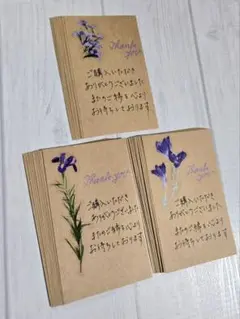 Thank you
ご購入いただき
ありがとうございました
またのご縁を心より
お待ちしております
Thank you
ご購入いただき
ありがとうございました
またのご縁を心より
お待ちしております
Thank you
ご購入いただき
ありがとうございました
またのご縁を心より
お待ちしております